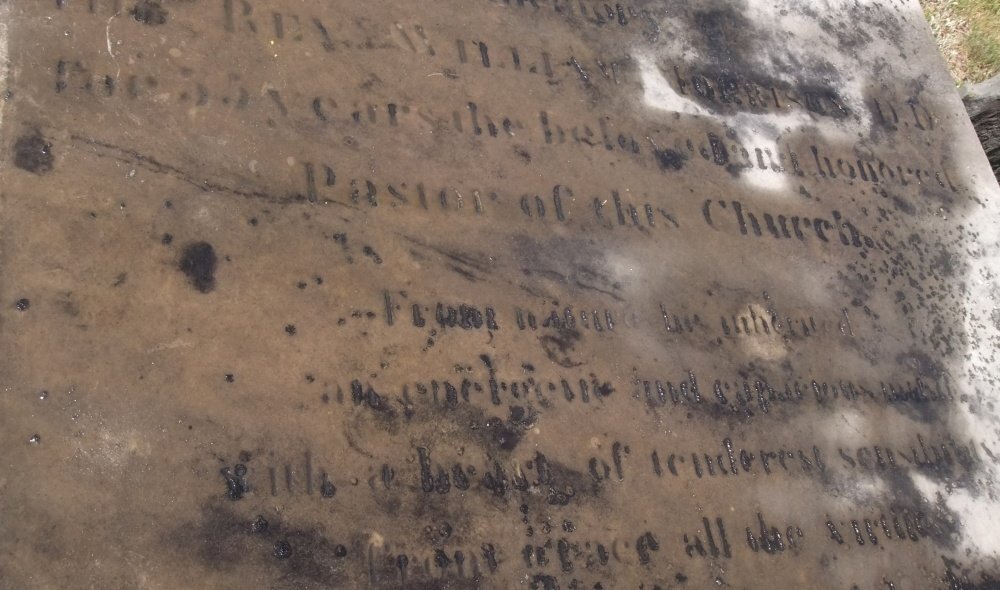 REV. WILLIAM TORRISON D D
For 55 Years the beloved and honored
Pastor of this Church.
From nature he inherited
an energetic and capacious mind
With a heart of tenderest sensibility
From grace all the virtues